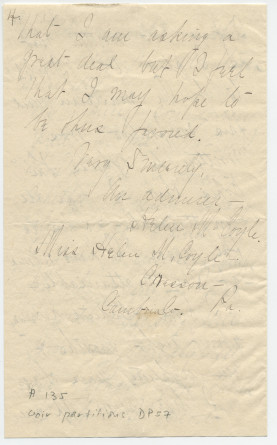 4.
that I am asking a
great deal but I feel
that I may hope to
be thus favored.
Very Sincerely,
An admirer –
Helen M. Coyle.
Miss Helen M. Coyle –
Cresson –
Cambria Co. Pa.
# 135
voir partitions DP57